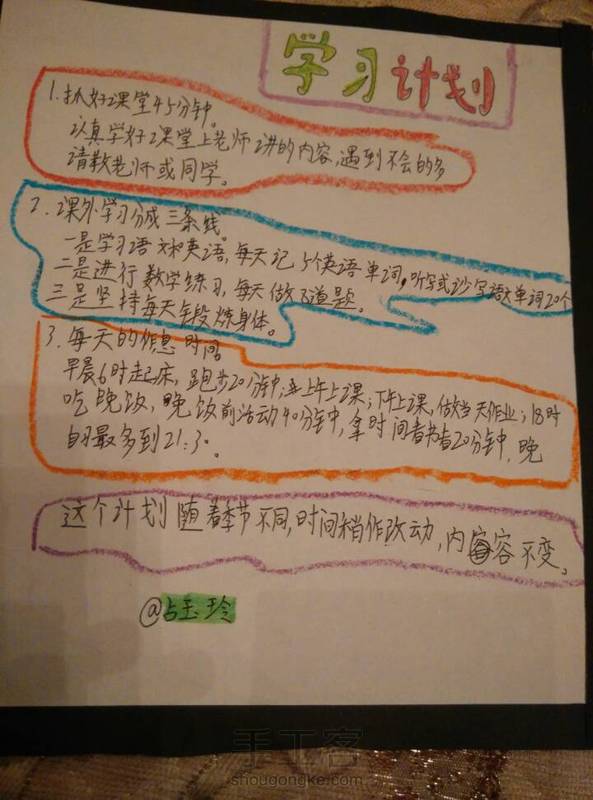 学习计划
1.抓好课堂45分钟。
认真学好课堂上老师讲的内容,遇到不会的多
请教老师或同学。
2.课外学习分成三条线。
一是学习语文和英语,每天记5个英语单词,听写或抄写语文单词20个
二是进行数学练习,每天做 道题。
三是坚持每天 锻炼身体。
3.每天的作息时间。
早晨6时起床,跑步20分钟;上午上课;下午上课,做当天作业;18时
吃晚饭,晚饭前活动40分钟,拿时间看书20分钟,晚
自习最多到21:30。
这个计划随着季节不同,时间稍作改动,内容不变。
@占玉玲
手工客
shougongke.com